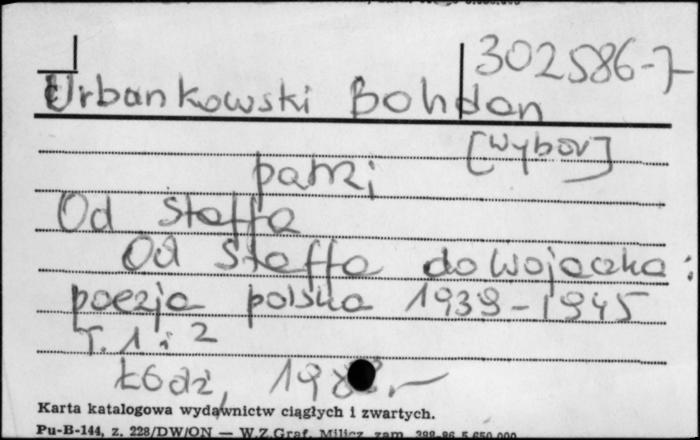 302586-7
Urbankowski Bohdan
[wybór]
patrz
Od Staffa
Od Staffa do Wojaczka :
poezja polska 1939-1945
T. 1 i 2
Łódź, 198 .-
Karta katalogowa wydawnictw ciągłych i zwartych.
Pu-B-144, z. 228/DW/ON — W.Z.Graf. Milicz, zam.